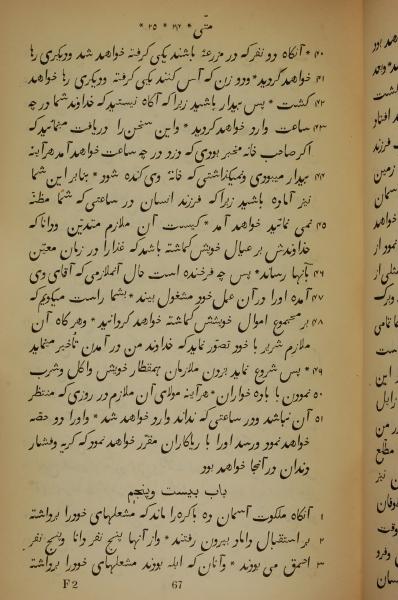 * متّی * ۲۴ * ۲۵ *
۴۰ * آنگاه دو نفر که در مزرعهٔ باشند یکی گرفته خواهد شد و دیگری رها
۴۱ خواهد گردید * و دو زن که آس کنند یکی گرفته و دیگری رها خواهد
۴۲ گشت * پس بیدار باشید زیرا که آگاه نیستید که خداوند شما در چه
۴۳ ساعت وارد خواهد گردید * و این سخن را دریافت میمائید که
اگر صاحب خانه مخبر بودی که دزد در چه ساعت خواهد آمد هر آینه
۴۴ بیدار میبودی و نمیگذاشتی که خانهٔ وی کنده شود * بنابر این شما
نیز آماده باشید زیرا که فرزند انسان در ساعتی که شما مظنّهٔ
۴۵ نمی نمائید خواهد آمد * کیست آن ملازم متدیّن و دانا که
خداوندش بر عیال خویش گماشته باشد که غذا را در زمان معیّن
۴۶ بآنها رساند * پس چه فرخنده است حال آنملازمی که آقای وی
۴۷ آمده او را در آن عمل خود مشغول بیند * بشما راست میگویم که
۴۸ بر مجموع اموال خویشش گماشته خواهد گردانید * و هرگاه آن
ملازم شریر با خود تصوّر نماید که خداوند من در آمدن تأخیر مینماید
۴۹ * پس شروع نماید بزدن ملازمان همقطار خویش و اکل و شرب
۵۰ نمودن با باده خواران * هر آینه مولای آن ملازم در روزی که منتظر
۵۱ آن نباشد و در ساعتی که نداند وارد خواهد شد * و او را دو حصّه
خواهد نمود و رسد او را با ریاکاران مقرّر خواهد نمود که گریه و فشار
دندان در آنجا خواهد بود
باب بیست و پنجم
۱ آنگاه ملکوت آسمان ده باکره را ماند که مشعلهای خود را برداشته
۲ بر استقبال داماد بیرون رفتند * و از آنها پنج نفر دانا و پنج نفر
۳ احمق می بودند * و آنان که ابله بودند مشعلهای خود را برداشته
F 2 67